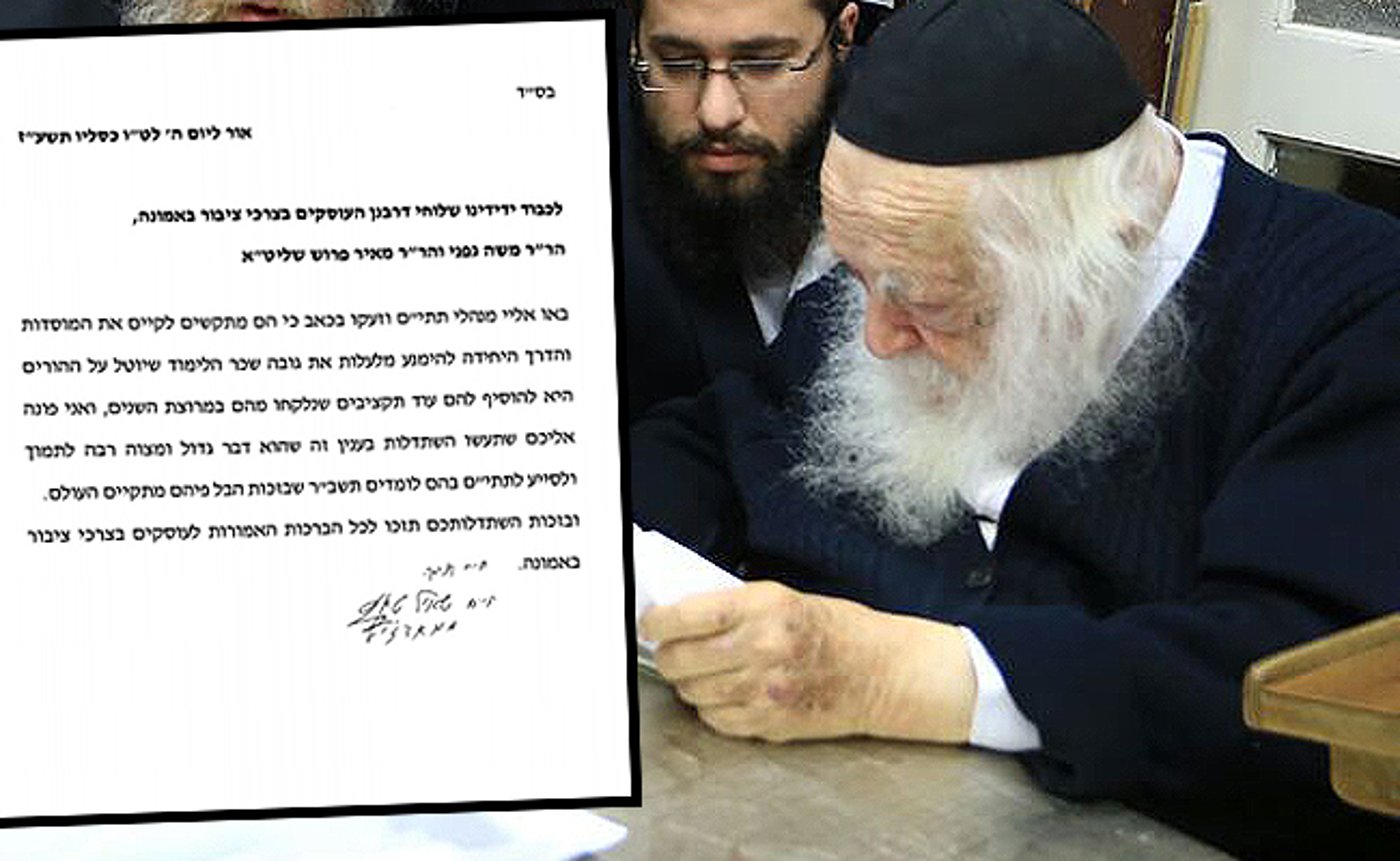 בס״ד
אור ליום ה׳ לט״ו כסליו תשע״ז
לכבוד ידידינו שלוחי דרבנן העוסקים בצרכי ציבור באמונה,
הר״ר משה גפני והר״ר מאיר פרוש שליט״א
באו אליי מנהלי תתי״ם וזעקו בכאב כי הם מתקשים לקיים את המוסדות
והדרך היחידה להימנע מלעלות את גובה שכר הלימוד שיוטל על ההורים
היא להוסיף להם עוד תקציבים שנלקחו מהם במרוצת השנים, ואני פונה
אליכם שתעשו השתדלות בענין זה שהוא דבר גדול ומצוה רבה לתמוך
ולסייע לתתי״ם בהם לומדים תשב״ר שבזכות הבל פיהם מתקיים העולם.
ובזכות השתדלותכם תזכו לכל הברכות האמורות לעוסקים בצרכי ציבור
באמונה.